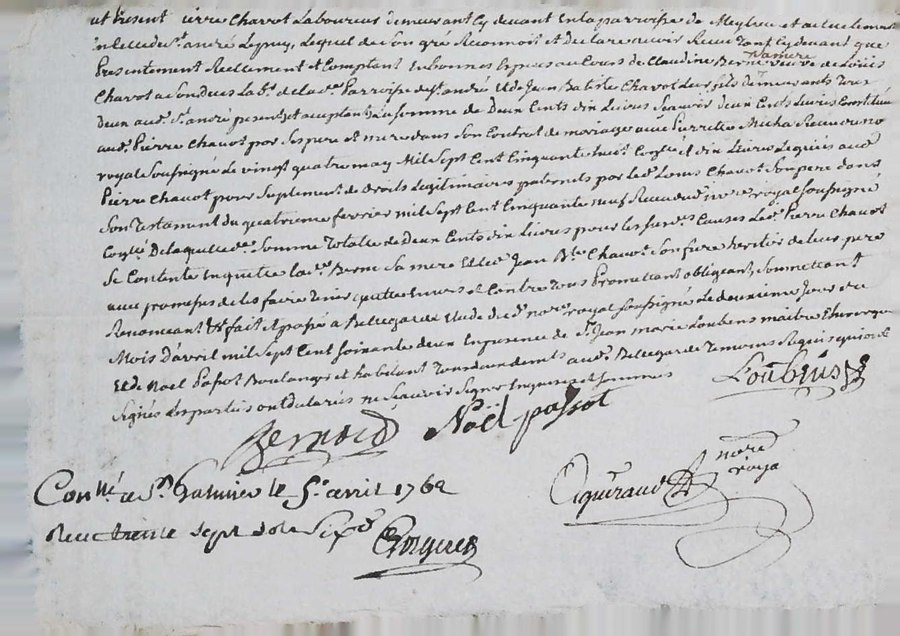 ut present ierre Chavot Laboureur demeurant cy devant en la parroisse de Meylieu et actuelement
en celle de st. andré Lepuy, Lequel de son gré Reconnoit et declare avoir Receu tant cy devant que
presentement Reellement et Comptant en bonnes Especes au Cours de Claudine Berne veuve de Loüis
sa mere
Chavot a son deces La dt. de lad. parroisse de st. andré Et de Jean Batiste Chavot Leur fils demeurants tous
deux aud. st. andré presents et acceptants La somme de deux Cents dix Livres Scavoir deux Cents Livres Constitué
aud. Pierre Chavot par ses pere et mere dans son Contrat de mariage avec Pierrette Micha Receu du no
royal soussigné Le vingt quatre may Mil sept Cent Cinquante huit Conlé Et dix Livres Leguées aud.
Pierre Chavot pour suplement de droits Legitimaires paternels par led. Louis Chavot son pere dans
son Testament du quatrieme fevrier mil sept Cent Cinquante neuf Receu dud. nore. royal soussigné
Conlé De laquelle de. somme Totalle de deux Cents dix Livres pour les susd. Causes Led. Pierre Chavot
se Contente En quitte lad. Berne sa mere Et led. Jean Bte. Chavot son frere heritier de leur pere
avec promesses de les faire tenir quittes envers et Contre tous Promettant obligeant, soummettant
Renonceant &a fait et passé a Bellegarde Etude dud. nore. royal soussigné Le deuxieme Jour du
Mois D'avril mil sept Cent soixante deux En presence de sr. Jean marie Loubens maitre Chirurgien
Et de Noel Passot Boulanger et habitant demeurants aud. Bellegarde Temoins Requis qui ont
signés Les parties ont declarées ne sçavoir signer Enquises et sommées
Loubens
Bernard
Noël passot
Conllé a st. Galmier le 5e. avril 1762
Receu trente sept sols six d.
nore.
roya